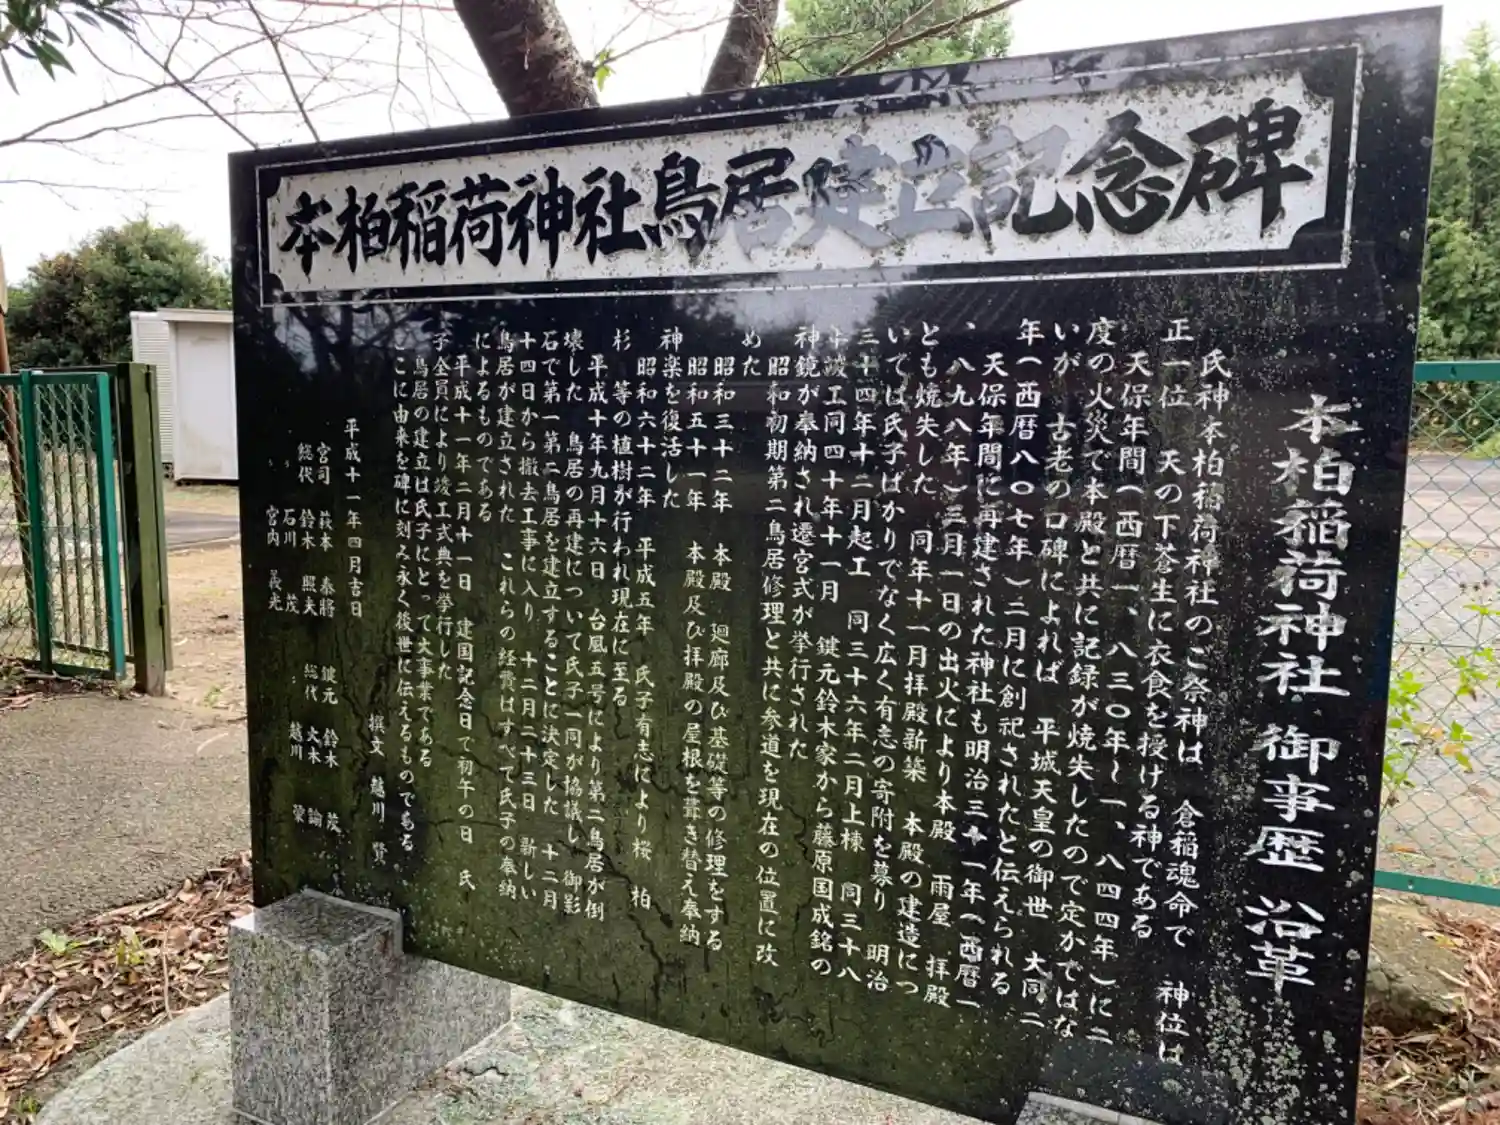 本柏稲荷神社鳥居建立記念碑
本柏稲荷神社 御事歴 沿革
氏神本柏稲荷神社のご祭神は 倉稲魂命で 神位は
正一位 天の下蒼生に衣食を授ける神である
天保年間(西暦一、八三〇年〜一、八四四年)に二
度の火災で本殿と共に記録が焼失したので定かではな
いが 古老の口碑によれば 平城天皇の御世 大同二
年(西暦八〇七年)二月に創祀されたと伝えられる
天保年間に再建された神社も明治三十一年(西暦一
、八九八年)三月一日の出火により本殿 雨屋 拝殿
とも焼失した 同年十一月拝殿新築 本殿の建造につ
いては氏子ばかりでなく広く有志の寄附を募り 明治
三十四年十二月起工 同三十六年二月上棟 同三十八
年竣工同四十年十一月 鍵元鈴木家から藤原国成銘の
神鏡が奉納され遷宮式が挙行された
昭和初期第二鳥居修理と共に参道を現在の位置に改
めた
昭和三十二年 本殿 廻廊及び基礎等の修理をする
昭和五十一年 本殿及び拝殿の屋根を葺き替え奉納
神楽を復活した
昭和六十二年 平成五年 氏子有志により桜 柏
杉 等の植樹が行われ現在に至る
平成十年九月十六日 台風五号により第二鳥居が倒
壊した 鳥居の再建について氏子一同が協議し 御影
石で第一第二鳥居を建立することに決定した 十二月
十四日から撤去工事に入り 十二月二十三日 新しい
鳥居が建立された これらの経費はすべて氏子の奉納
によるものである
平成十一年二月十一日 建国記念日で初午の日 氏
子全員により竣工式典を挙行した
鳥居の建立は氏子にとって大事業である
ここに由来を碑に刻み永く後世に伝えるものである
撰文 越川 賢
平成十一年四月吉日
宮司 萩本 泰將 鍵元 鈴木 茂
総代 鈴木 照夫 総代 大木 諭
〃 石川 茂 〃 越川 榮
〃 宮内 義光